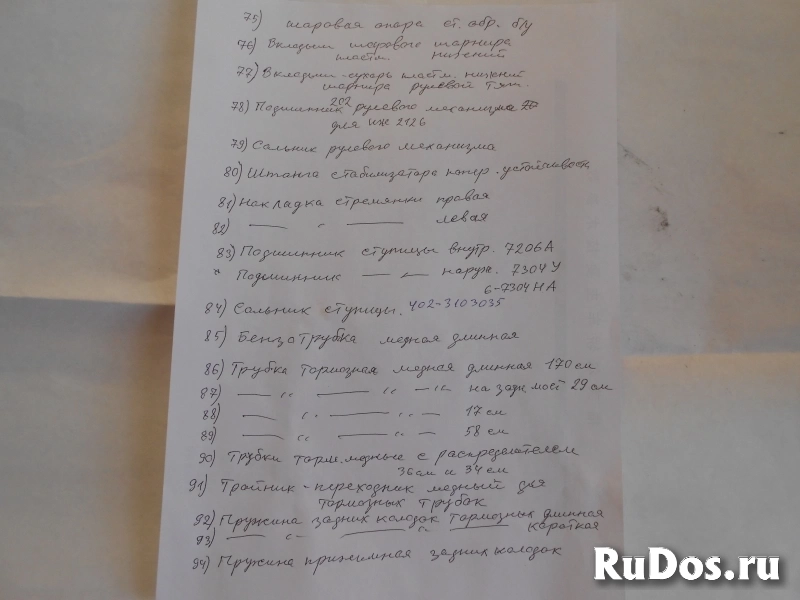 75) шаровая опора ст. обр. б/у
76) Вкладыш шарового шарнира
пластм. нижний
77) Вкладыш-сухарь пластм. нижний
шарнира рулевой тяги
78) Подшипник рулевого механизма
202
для иж 2126
79) Сальник рулевого механизма
80) Штанга стабилизатора попер. устойчивости
81) Накладка стремянки правая
82) — " — левая
83) Подшипник ступицы внутр. 7206А
* Подшипник — " — наруж. 7304У
6-7304НА
84) Сальник ступицы. 402-3103035
85) Бензотрубка медная длинная
86) Трубка тормозная медная длинная 170 см
87) — " — " — " на задн. мост 29 см
88) — " — " — 17 см
89) — " — " — 58 см
90) Трубки торм. медные с распределителем
36 см и 34 см
91) Тройник-переходник медный для
тормозных трубок
92) Пружина задних колодок тормозных длинная
93) — " — " — короткая
94) Пружина прижимная задних колодок
RuDos.ru